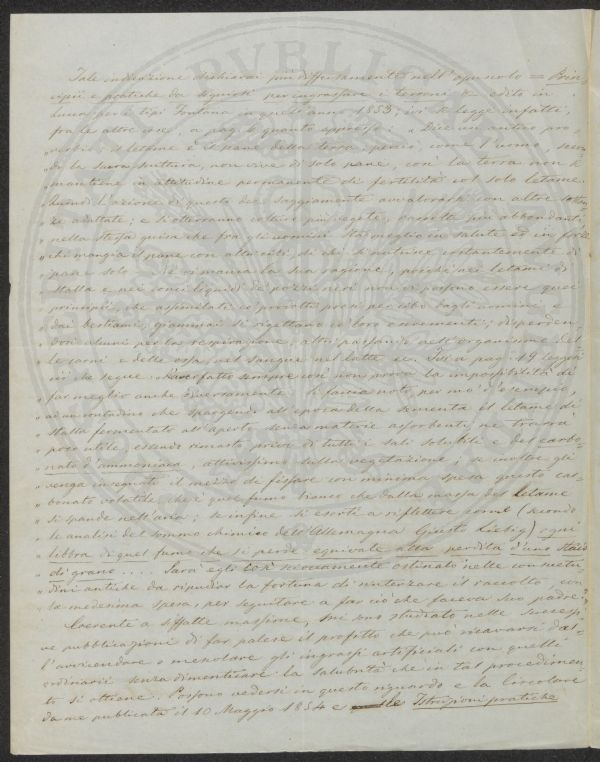 Tale indicazione dichiarai più diffusamente nell'opuscolo = Prin-
cipii e pratiche da seguirsi per ingrassare i terreni & edito in
Lucca per i tipi Fontana in quest'anno 1853; ivi si legge infatti,
fra le altre cose, a pag. 6 quanto appresso: " Dice un antico pro-
" verbio: il letame è il pane della terra, perciò, come l'uomo, secon-
" do la Sacra Scrittura, non vive di solo pane, così la terra non si
" mantiene in attitudine permanente di fertilità col solo letame.
" Quindi l'azione di questo dee saggiamente avvalorarsi con altre sostan-
" ze adattate; e si otterranno colture più vegete, raccolte più abbondanti
" nella stessa guisa che fra gli uomini sta meglio in salute ed in forze
" chi mangia il pane con altri cibi, di chi si nutrisce costantemente di
" pane solo = Se ne manca la sua ragione, poiché nei letami di
" stalla e nei conci liquidi de' pozzi neri non vi possono essere quei
" principii, che assimilati co' prodotti presi per cibo dagli uomini e
" dai bestiami, giammai si rigettano co' loro escrementi; disperden-
" dosi alcuni per la respirazione, altri passando nell'organismo del
" le carni e delle ossa, nel sangue nel latte ec. Ivi a pag. 19 leggesi
" ciò che segue: " L'aver fatto sempre così non prova la impossibilità di
" far meglio anche diversamente. Si faccia noto per mo' d'esempio,
" ad un contadino che spargendo all'epoca della sementa il letame di
" stalla fermentato all'aperto senza materie assorbenti ne trarrà
" poco utile, essendo rimasto privo di tutti i sali solubili e del carbo-
" nato d'ammoniaca, attivissimo sulla vegetazione; se inoltre gli
" venga insegnato il mezzo di fissare con minima spesa questo car-
" bonato volatile che è quel fumo bianco che dalla massa del letame
" si spande nell'aria; se infine si esorti a riflettere come (secondo
" le analisi del sommo chimico dell'Allemagna Giusto Liebig) ogni
" libbra di quel fumo che si perde equivale alla perdita d'uno staio
" di grano .... Sarà egli così scioccamente ostinato nelle consuetu-
" dini antiche da ripudiar la fortuna di quaterzare il raccolto, con
" la medesima spesa, per seguitare a far ciò che faceva suo padre?"
Coerente a siffatte massime, mi son studiato nelle successi
ve pubblicazioni di far palese il profitto che può ricavarsi dal-
l'avvicendare o mescolare gli ingrassi artificiali con quelli
ordinarii senza dimenticare la salubrità che in tal procedimen-
to si ottiene. Possono vedersi in questo riguardo e la Circolare
da me pubblicata il 10 Maggio 1854 e le Istruzioni pratiche